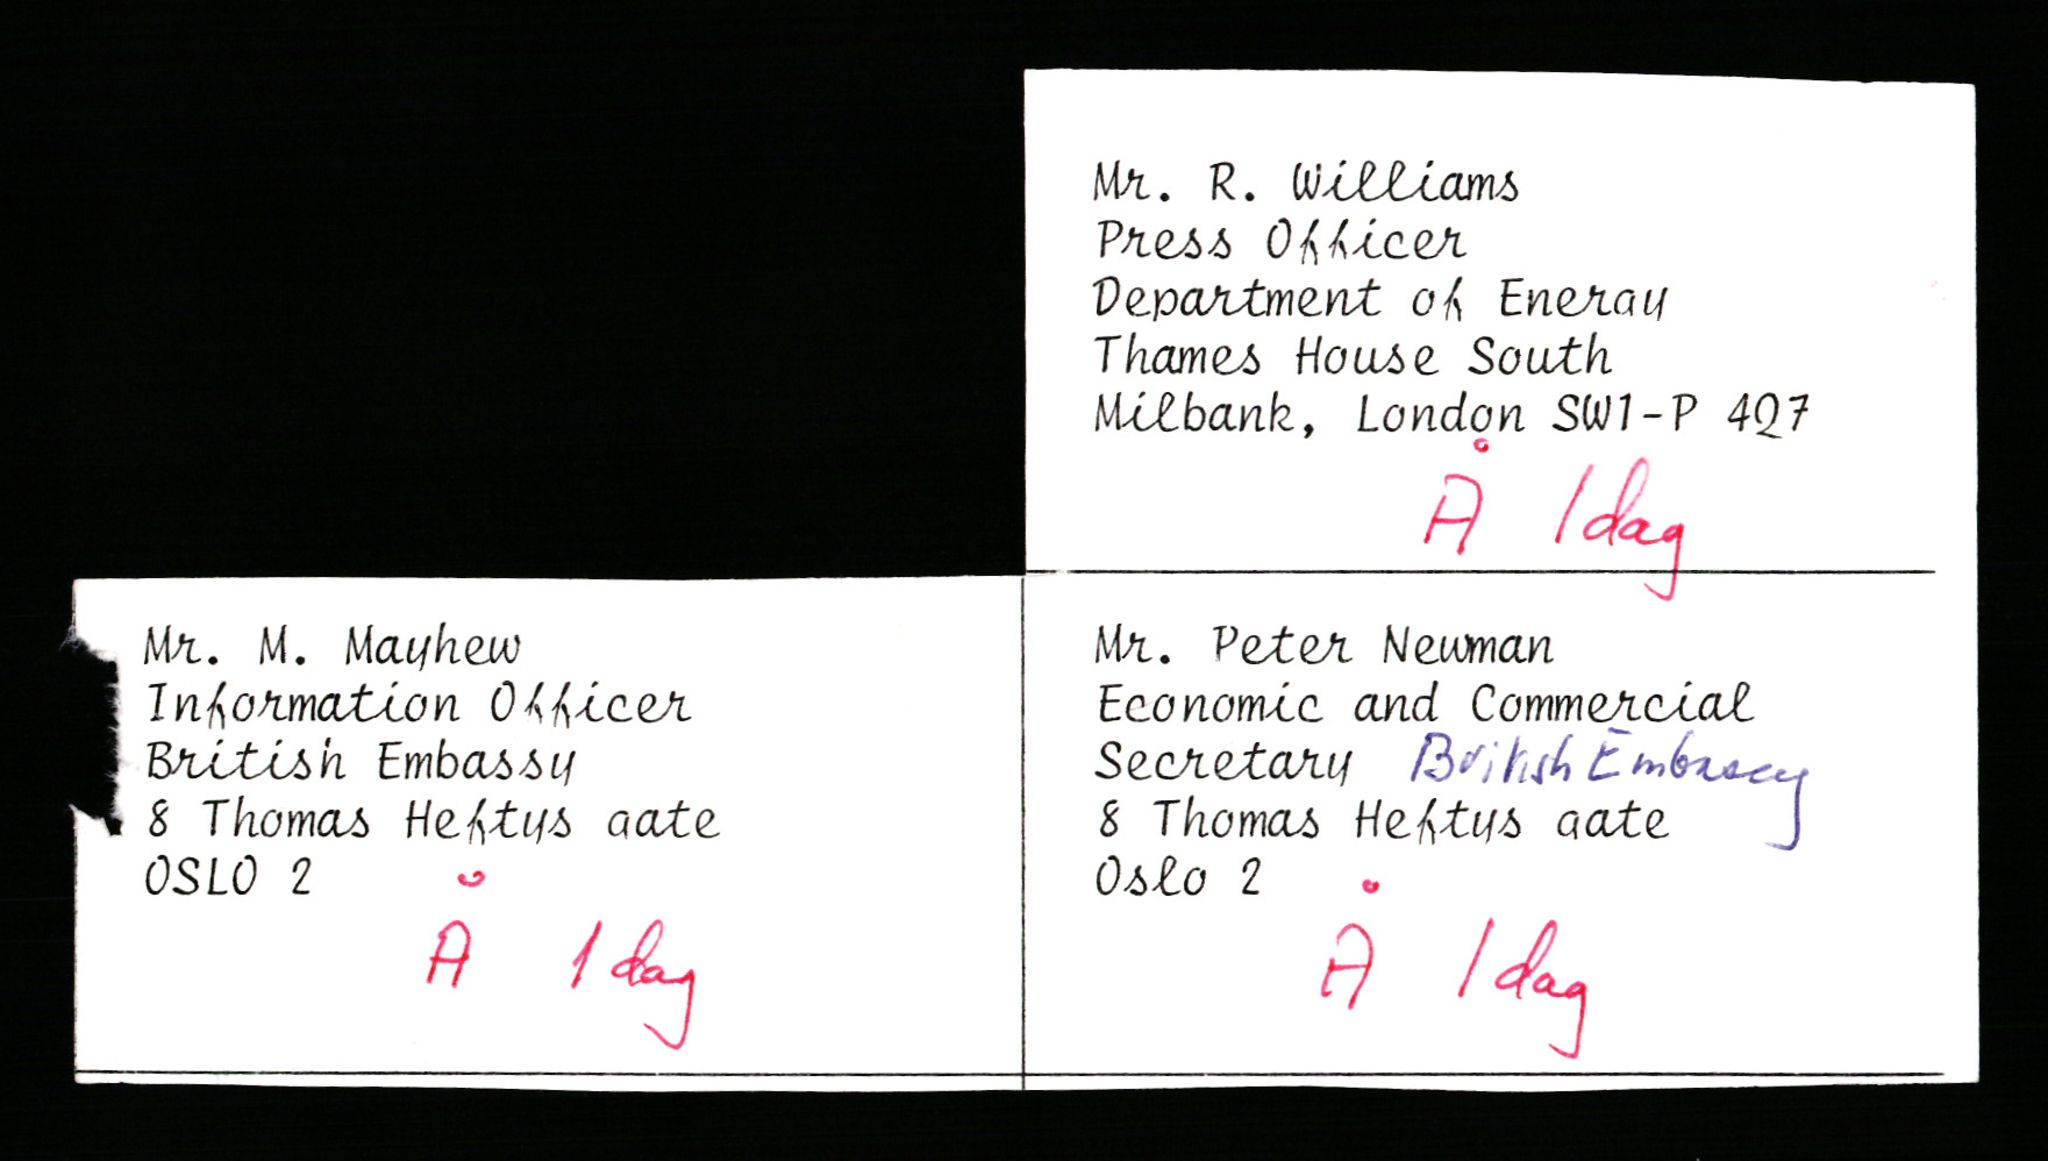 Mr. R. Williams
Press Officer
Department of Energy
Thames House South
Milbank, London SW1-P 4Q7
Å 1 dag
Mr. M. Mayhew
Information Officer
British Embassy
8 Thomas Heftys gate
OSLO 2
Å 1 dag
Mr. Peter Newman
Economic and Commercial
Secretary British Embassy
8 Thomas Heftys gate
Oslo 2
Å 1 dag